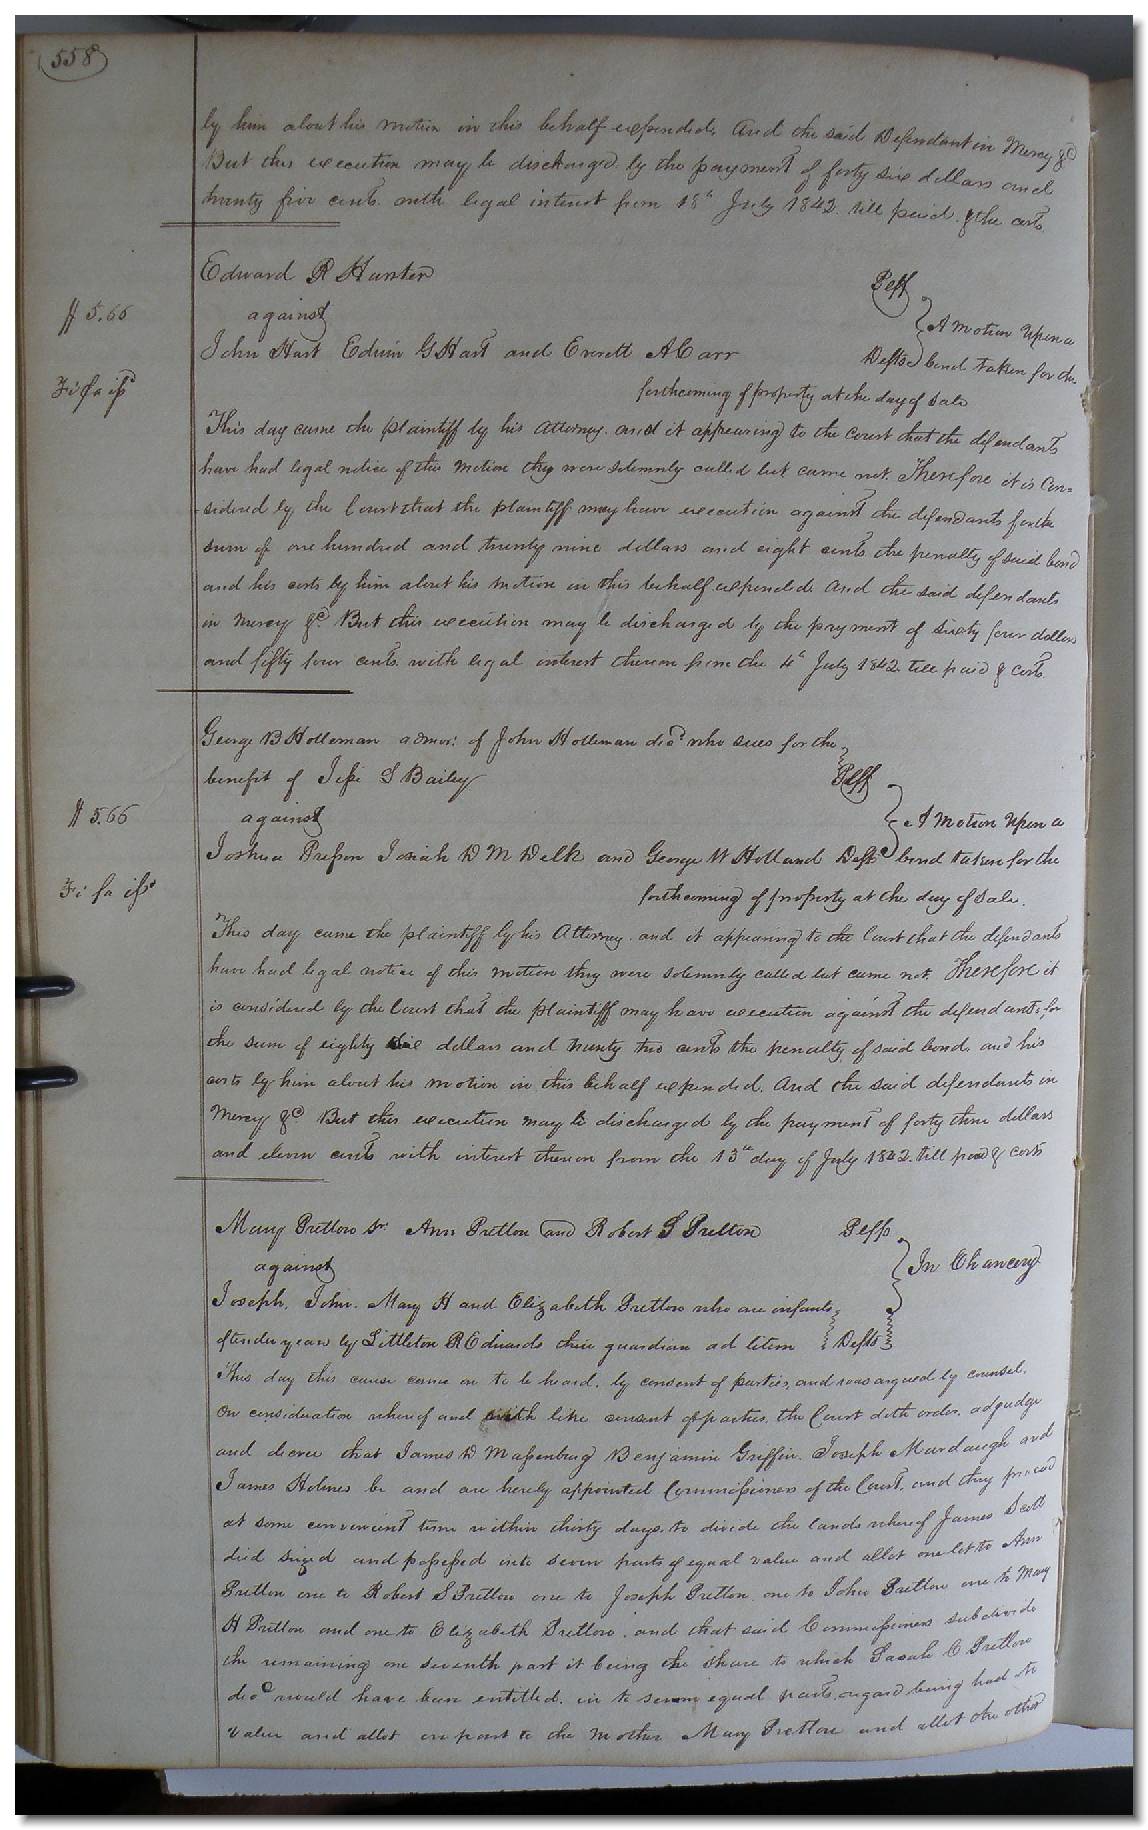 558
by him about his motion in this behalf expended. And the said Defendant in Mercy &c
But this execution may be discharged by the payment of forty six dollars and
twenty five cents. with legal interest from 18th July 1842. till paid. & the costs
Edward R Hunter Plff
$ 5.66 against } A motion upon a
John Hart Edwin G Hart and Everett A Carr Defts bond taken for the
Fi fa iſsd forthcoming of property at the day of sale
This day came the plaintiff by his attorney. and it appearing to the Court that the defendants
have had legal notice of this motion they were solemnly called but came not. Therefore it is Con=
sidered by the Court that the plaintiff may have execution against the defendants for the
sum of one hundred and twenty nine dollars and eight cents the penalty of said bond
and his costs by him about his motion in this behalf expended. And the said defendants
in Mercy &c. But this execution may be discharged by the payment of sixty four dollars
and fifty four cents. with legal interest thereon from the 4th July 1842. till paid & costs.
George B Holleman admor: of John Holleman decd who sues for the
benefit of Jeſse S Bailey Plff
$ 5.66 against } A motion upon a
Joshua Josiah D M Delk and George W Holland Defts bond taken for the
Fi fa iſsd forthcoming of property at the day of sale.
This day came the plaintiff by his Attorney. and it appearing to the Court that the defendants
have had legal notice of this motion they were solemnly called but came not. Therefore it
is considered by the Court that the plaintiff may have execution against the defendants, for
the sum of eighty six dollars and twenty two cents the penalty of said bond, and his
costs by him about his motion in this behalf expended. And the said defendants in
Mercy &c But this execution may be discharged by the payment of forty three dollars
and eleven cents with interest thereon from the 13th day of July 1842. till paid & costs
Mary Pretlow Sr. Ann Pretlow and Robert S Pretlow Plffs
against } In Chancery
Joseph, John. Mary H and Elizabeth Pretlow who are infants
of tender years by Littleton R Edwards their guardian ad litem Defts
This day this cause came on to be heard. by consent of parties, and was argued by counsel.
On consideration whereof and with like consent of parties, the Court doth order, adjudge
and decree that James D Maſsenburg Benjamin Griffin. Joseph Murdaugh and
James Holmes be and are hereby appointed Commiſsioners of the Court, and they proceed
at some convenient time within thirty days, to divide the lands whereof James Scott
died seized and poſseſsed into seven parts of equal value and allot one lot to Ann
Pretlow one to Robert S Pretlow one to Joseph Pretlow one to John Pretlow one to Mary
H Pretlow and one to Elizabeth Pretlow. and that said Commiſsioners subdivide
the remaining one seventh part it being the share to which Sarah C Pretlow
decd would have been entitled. in to seven equal parts, regard being had to
value and allot one part to the mother Mary Pretlow and allot the other